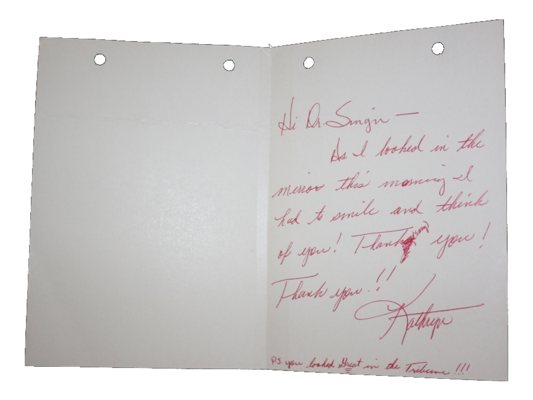 Hi Dr Singer —
As I looked in the
mirror this morning I
had to smile and think
of you! Thank you!
Thank you!!
Kathryn
P.S. you looked Great in the Tribune!!!